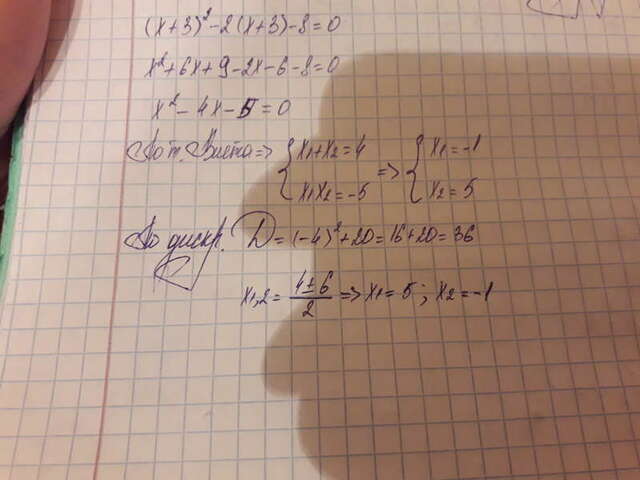 (x+3)²-2(x+3)-8=0
x²+6x+9-2x-6-8=0
x²-4x-5=0
По т. Виета => { x₁+x₂=4 => { x₁=-1
x₁x₂=-5 x₂=5
По дискр. D=(-4)²+20=16+20=36
x₁,₂= (4±6)/2 => x₁=5; x₂=-1